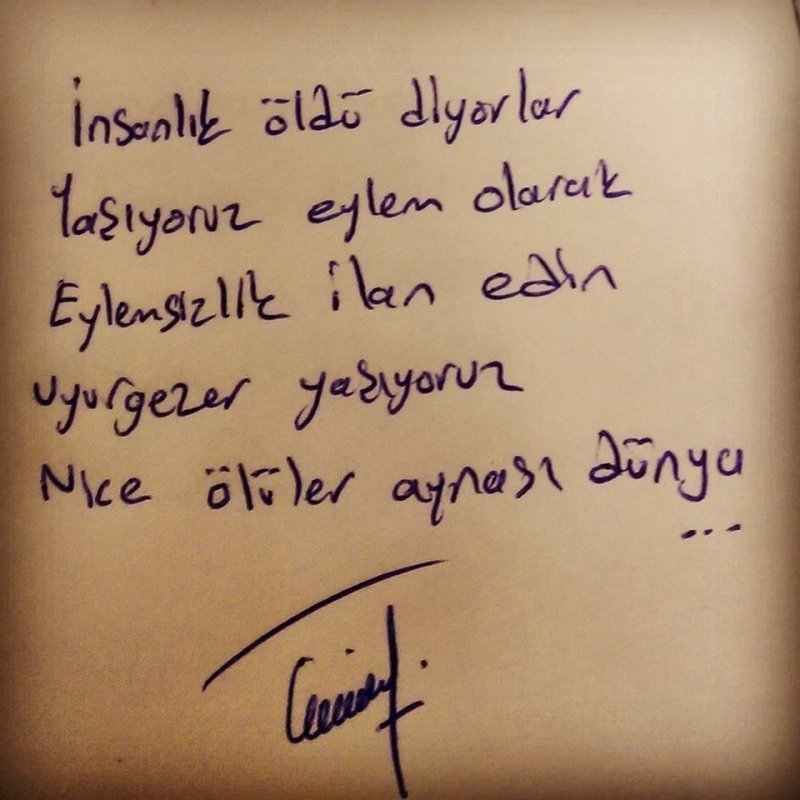 İnsanlık öldü diyorlar
Yaşıyoruz eylem olarak
Eylemsizlik ilan edin
uyurgezer yaşıyoruz
Nice ölüler aynası dünya
...